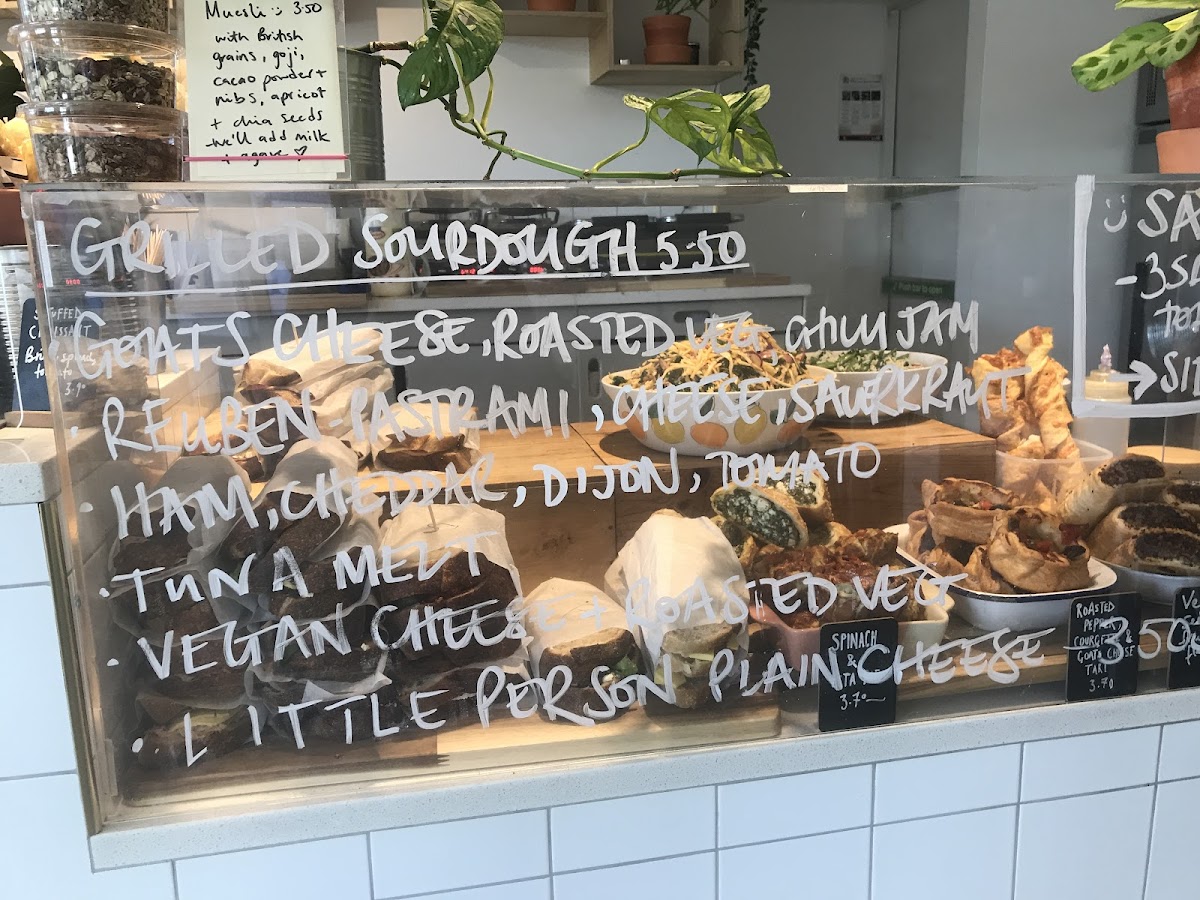 Muesli :) 3.50
with British
grains, goji,
cacao powder +
nibs, apricot
+ chia seeds
-we'll add milk
+ agave ♡
GRILLED SOURDOUGH 5.50
· GOATS CHEESE, ROASTED VEG, CHILLI JAM
· REUBEN-PASTRAMI, CHEESE, SAUERKRAUT
· HAM, CHEDDAR, DIJON, TOMATO
· TUNA MELT
· VEGAN CHEESE + ROASTED VEG
· LITTLE PERSON PLAIN CHEESE - 3.50
Push bar to open
SPINACH
&
3.70
ROASTED
PEPPER
COURGETTE &
GOATS CHEESE
TART
3.70
3.90